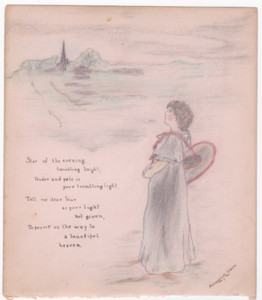 Star of the evening,
trembling bright,
Tender and pale is
your trembling light
Tell me dear Star
is your light
not given,
To point us the way to
a beautiful
heaven.